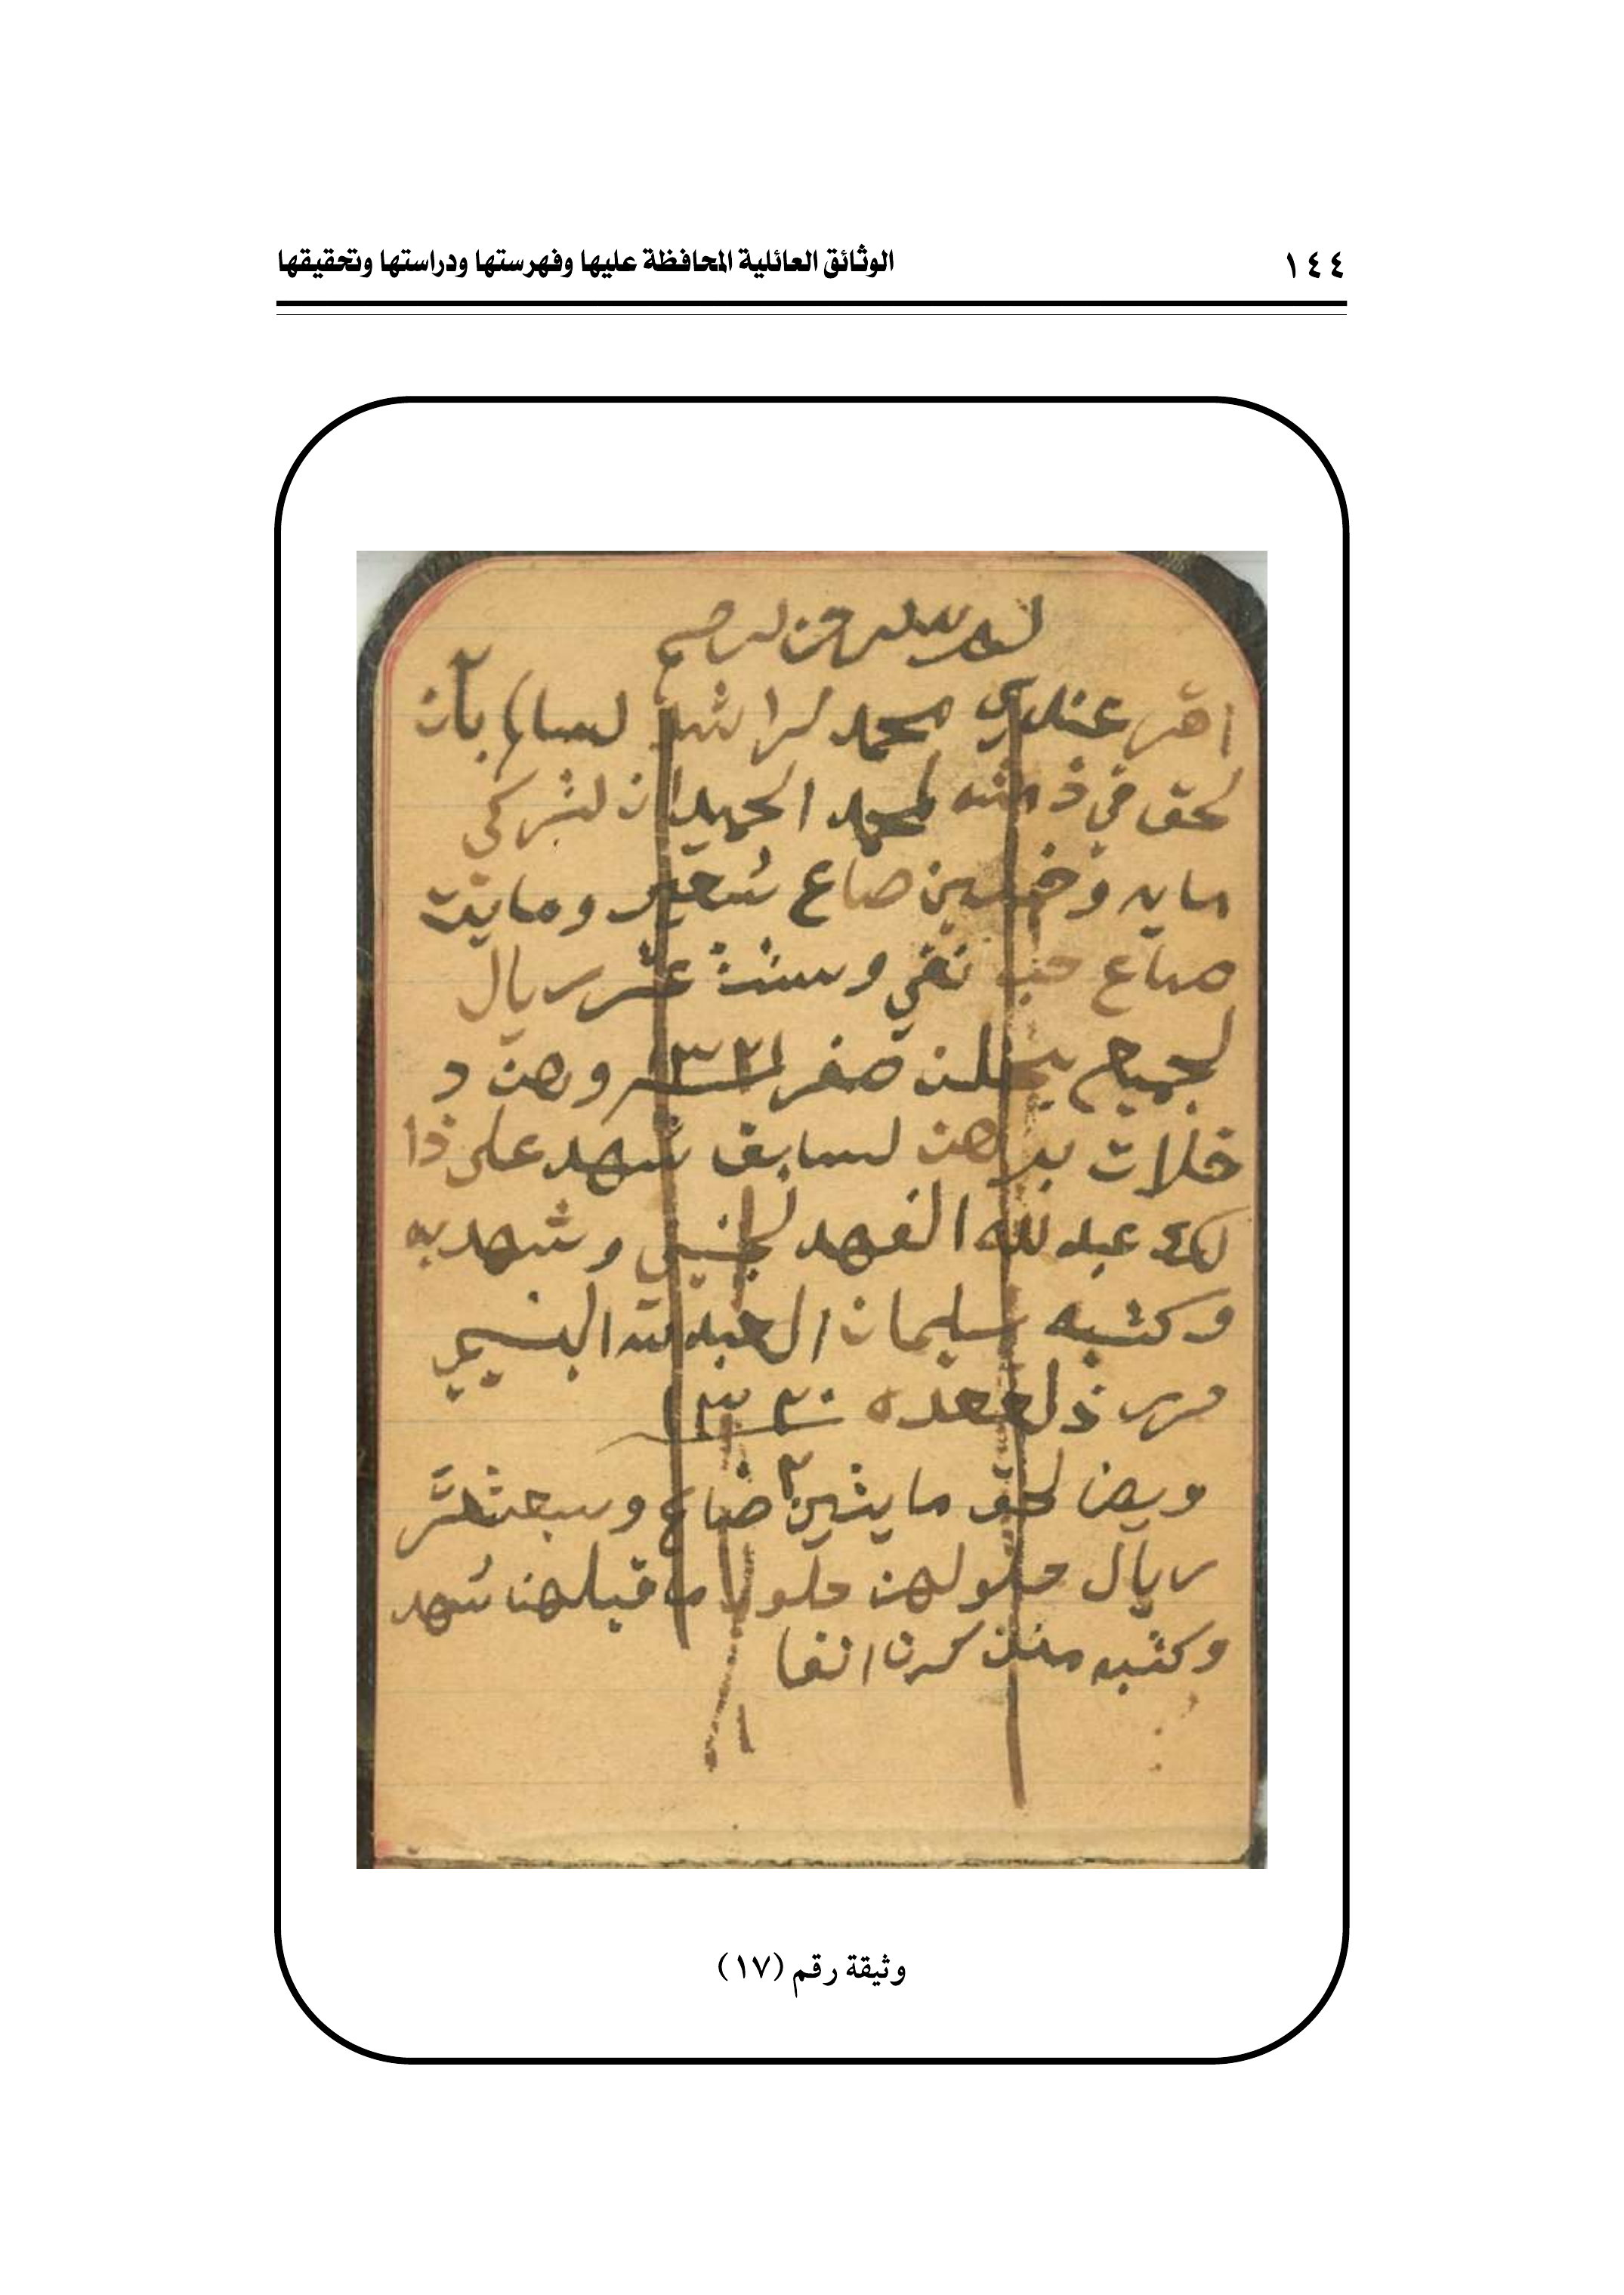 ١٤٤ الوثائق العائلية المحافظة عليها وفهرستها ودراستها وتحقيقها
اقر عندي محمد لراشد لسا بان
لحق في ذمته لمحمد الحميدان لتركي
مايه وخمسين صاع شعير ومايت
صاع حب نقي وست عشر ريال
لجميع يحلن صفر ١٣٢١ وهن د
خلات برهن لسابق شهد على ذا
لك عبد لله الفهد وشهد به
وكتبه سليمان العبد لله البسيمي
حرر ذلقعده ١٣٢٠
ويض لحق مايتين ٢ صاع وسبعتعشر
ريال حلولهن حلول ما قبلهن شهد
وكتبه من ذكرن انفا
وثيقة رقم (١٧)